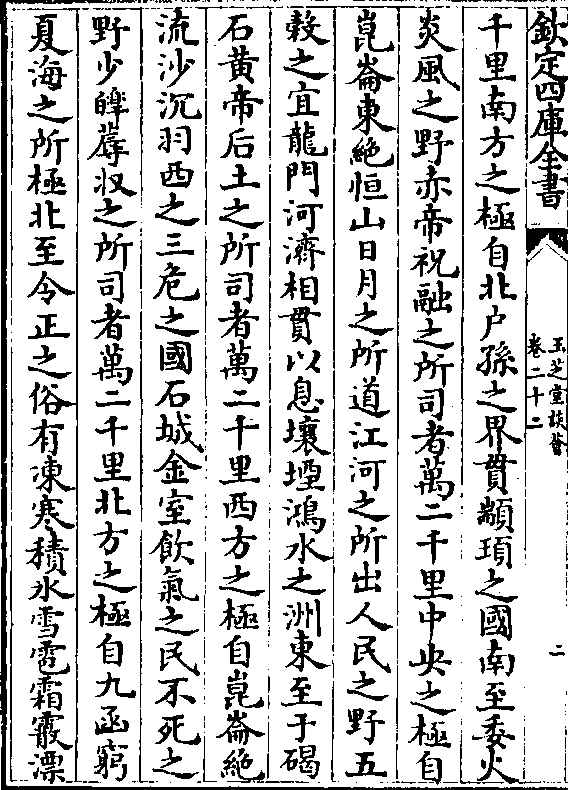 欽定四庫全書
玉芝堂談薈
卷二十二
二
千里南方之極自北户孫之界貫顓頊之國南至委火
炎風之野赤帝祝融之所司者萬二千里中央之極自
崑崙東絶恒山日月之所道江河之所出人民之野五
穀之宜龍門河濟相貫以息壤堙鴻水之洲東至于碣
石黄帝后土之所司者萬二千里西方之極自崑崙絶
流沙沉羽西之三危之國石城金室飲氣之民不死之
野少皥蓐收之所司者萬二千里北方之極自九函窮
夏海之所極北至令正之俗有凍寒積氷雪雹霜霰漂